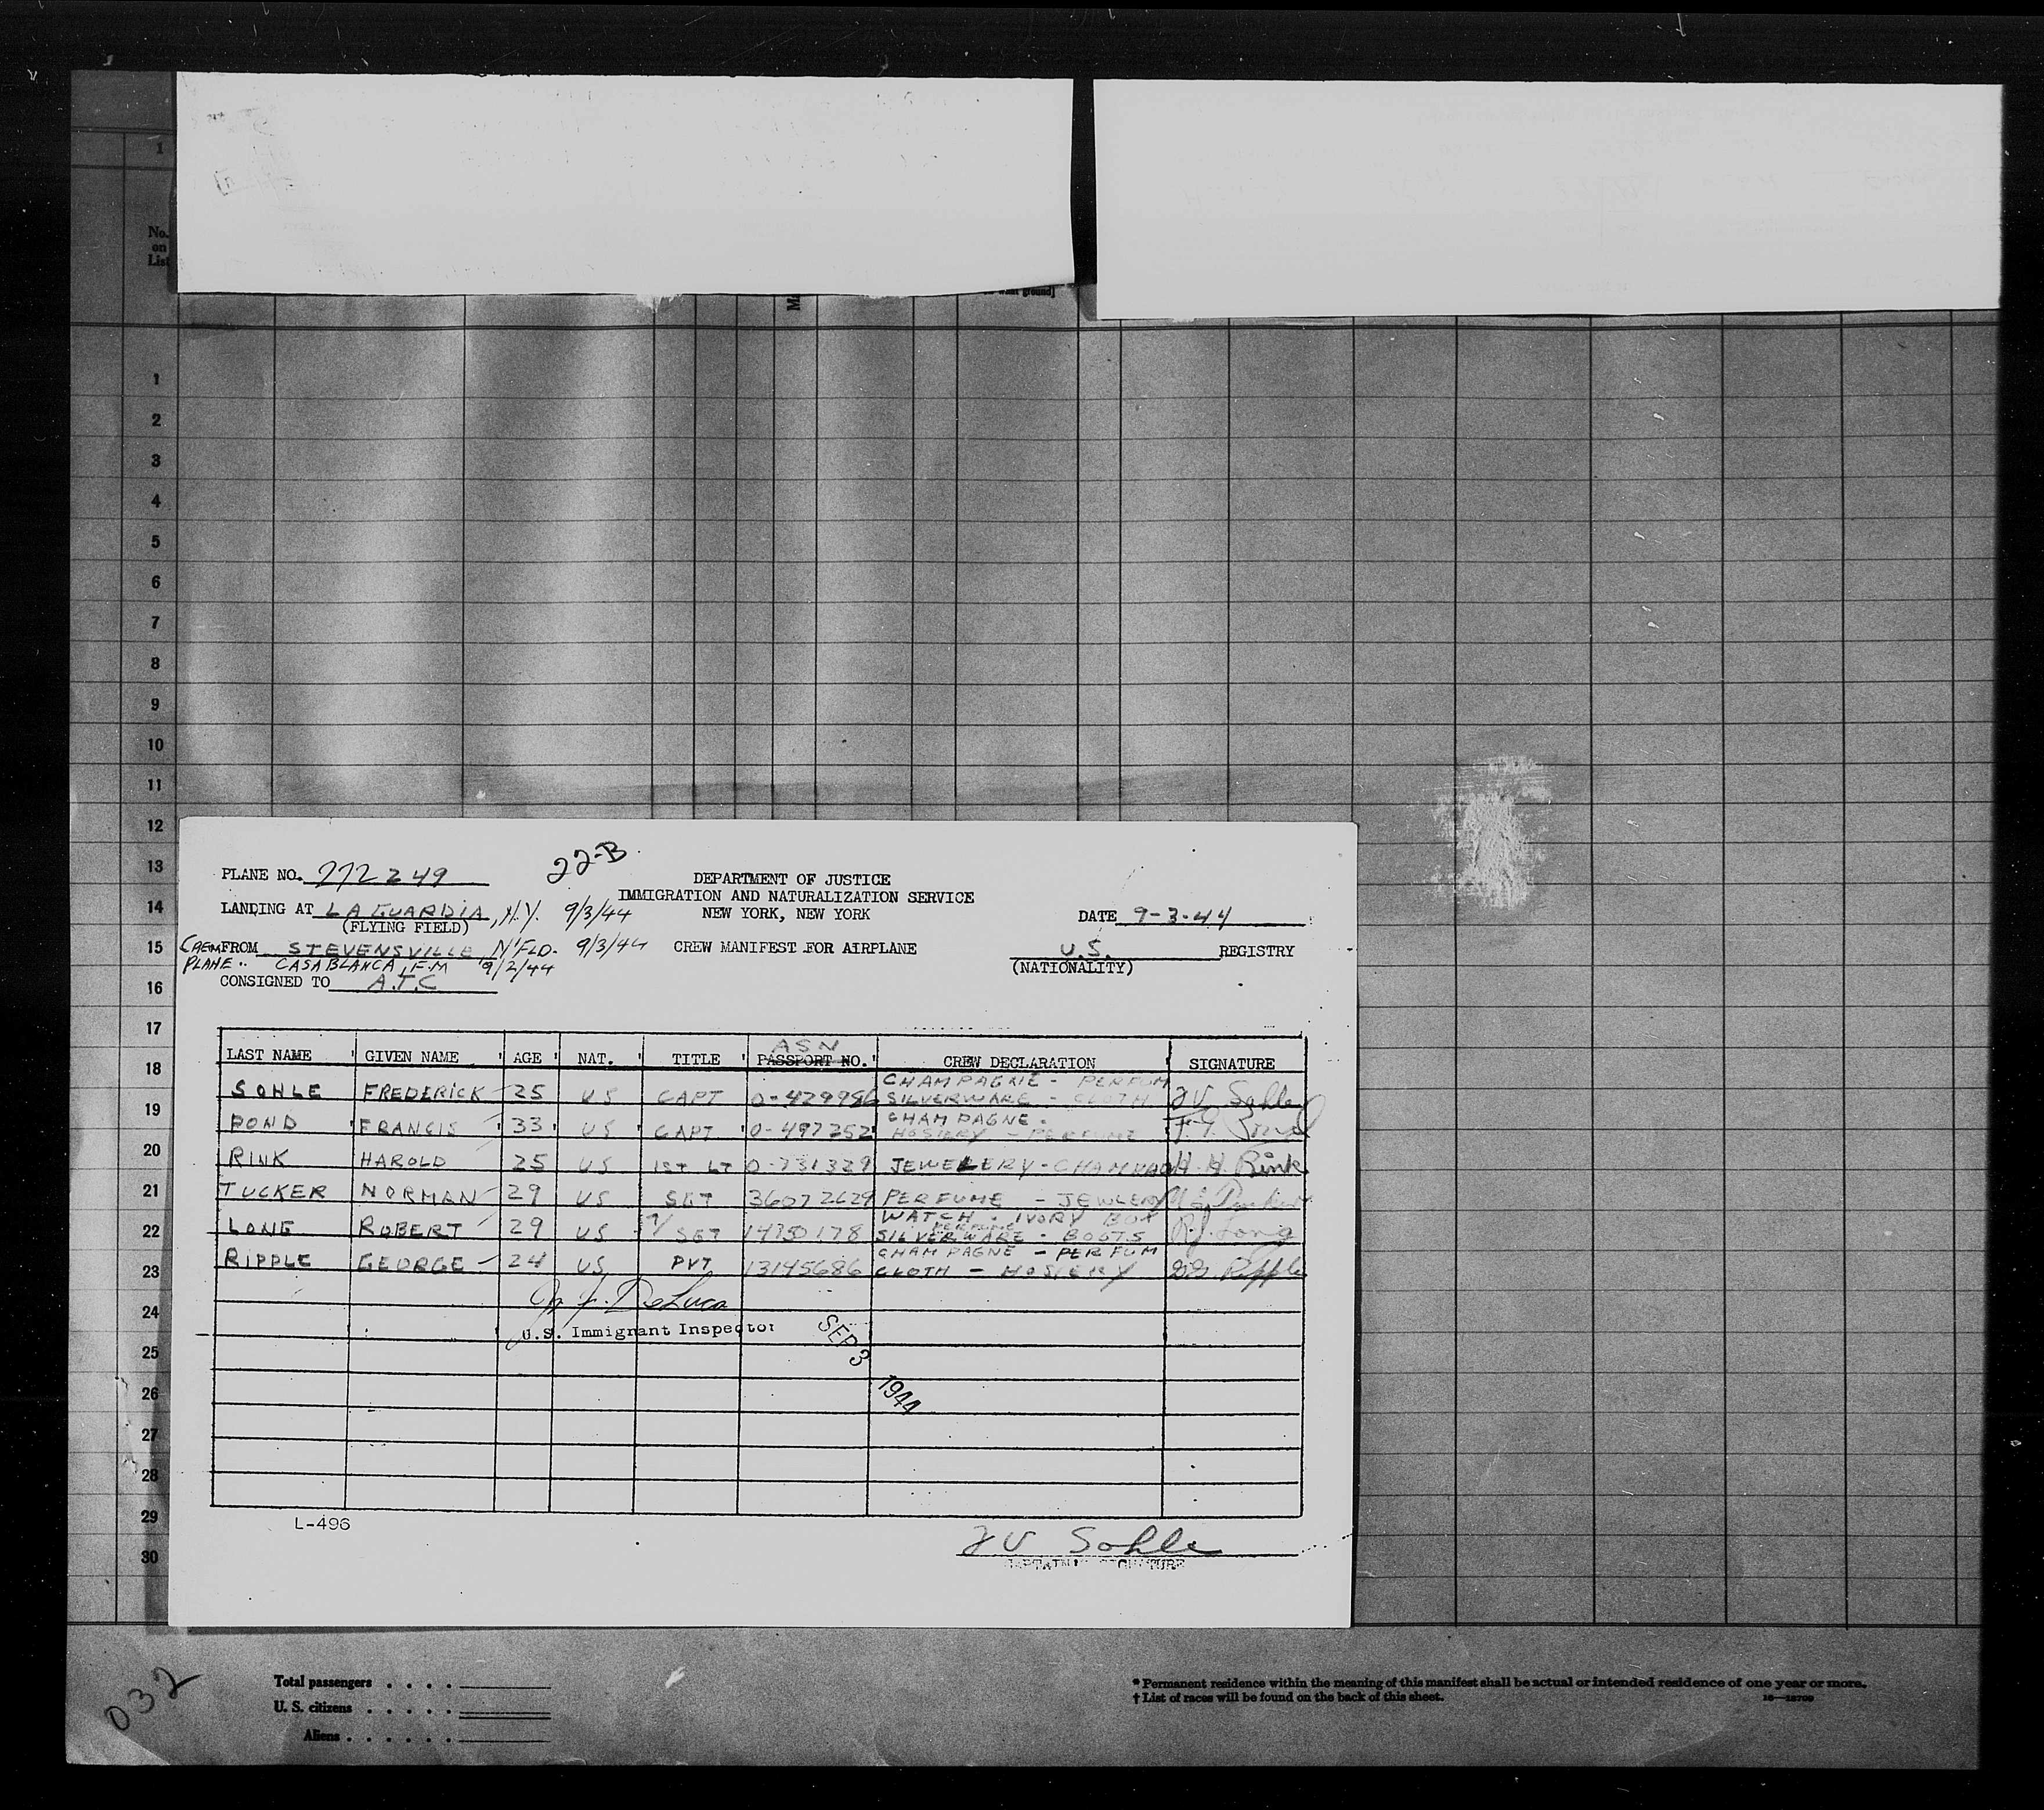 1
No.
on
List
1
2
3
4
5
6
7
8
9
10
11
12
13
14
15
16
17
18
19
20
21
22
23
24
25
26
27
28
29
30
22-B
PLANE NO. 272249
DEPARTMENT OF JUSTICE
IMMIGRATION AND NATURALIZATION SERVICE
NEW YORK, NEW YORK
LANDING AT LA GUARDIA, N.Y. 9/3/44
(FLYING FIELD)
DATE 9-3-44
CREW FROM STEVENSVILLE, N'FLD. 9/3/44
CREW MANIFEST FOR AIRPLANE
U.S. REGISTRY
(NATIONALITY)
PLANE " CASABLANCA, F.M 9/2/44
CONSIGNED TO A.T.C
ASN
LAST NAME GIVEN NAME AGE NAT. TITLE PASSPORT NO. CREW DECLARATION SIGNATURE
CHAMPAGNE - PERFUM
SOHLE FREDERICK 25 US CAPT 0-429986 SILVERWARE - CLOTH FV Sohle
CHAMPAGNE -
POND FRANCIS 33 US CAPT 0-497352 HOSIERY - PERFUME
RINK HAROLD 25 US 1ST LT 0-731329 JEWELERY - CHAMPAG H. H. Rink
TUCKER NORMAN 29 US SGT 36072629 PERFUME - JEWLERY
WATCH - IVORY BOX
PERFUME
LONG ROBERT 29 US T/SGT 14150178 SILVERWARE - BOOTS R.J. Long
CHAMPAGNE - PERFUM
RIPPLE GEORGE 24 US PVT 13145686 CLOTH - HOSIERY Ripple
DeLuca
U.S. Immigrant Inspector
SEP 3 1944
L-496
FV Sohle
CAPTAIN'S SIGNATURE
032
Total passengers . . . .
U. S. citizens . . . . .
Aliens . . . . . .
* Permanent residence within the meaning of this manifest shall be actual or intended residence of one year or more.
† List of races will be found on the back of this sheet.